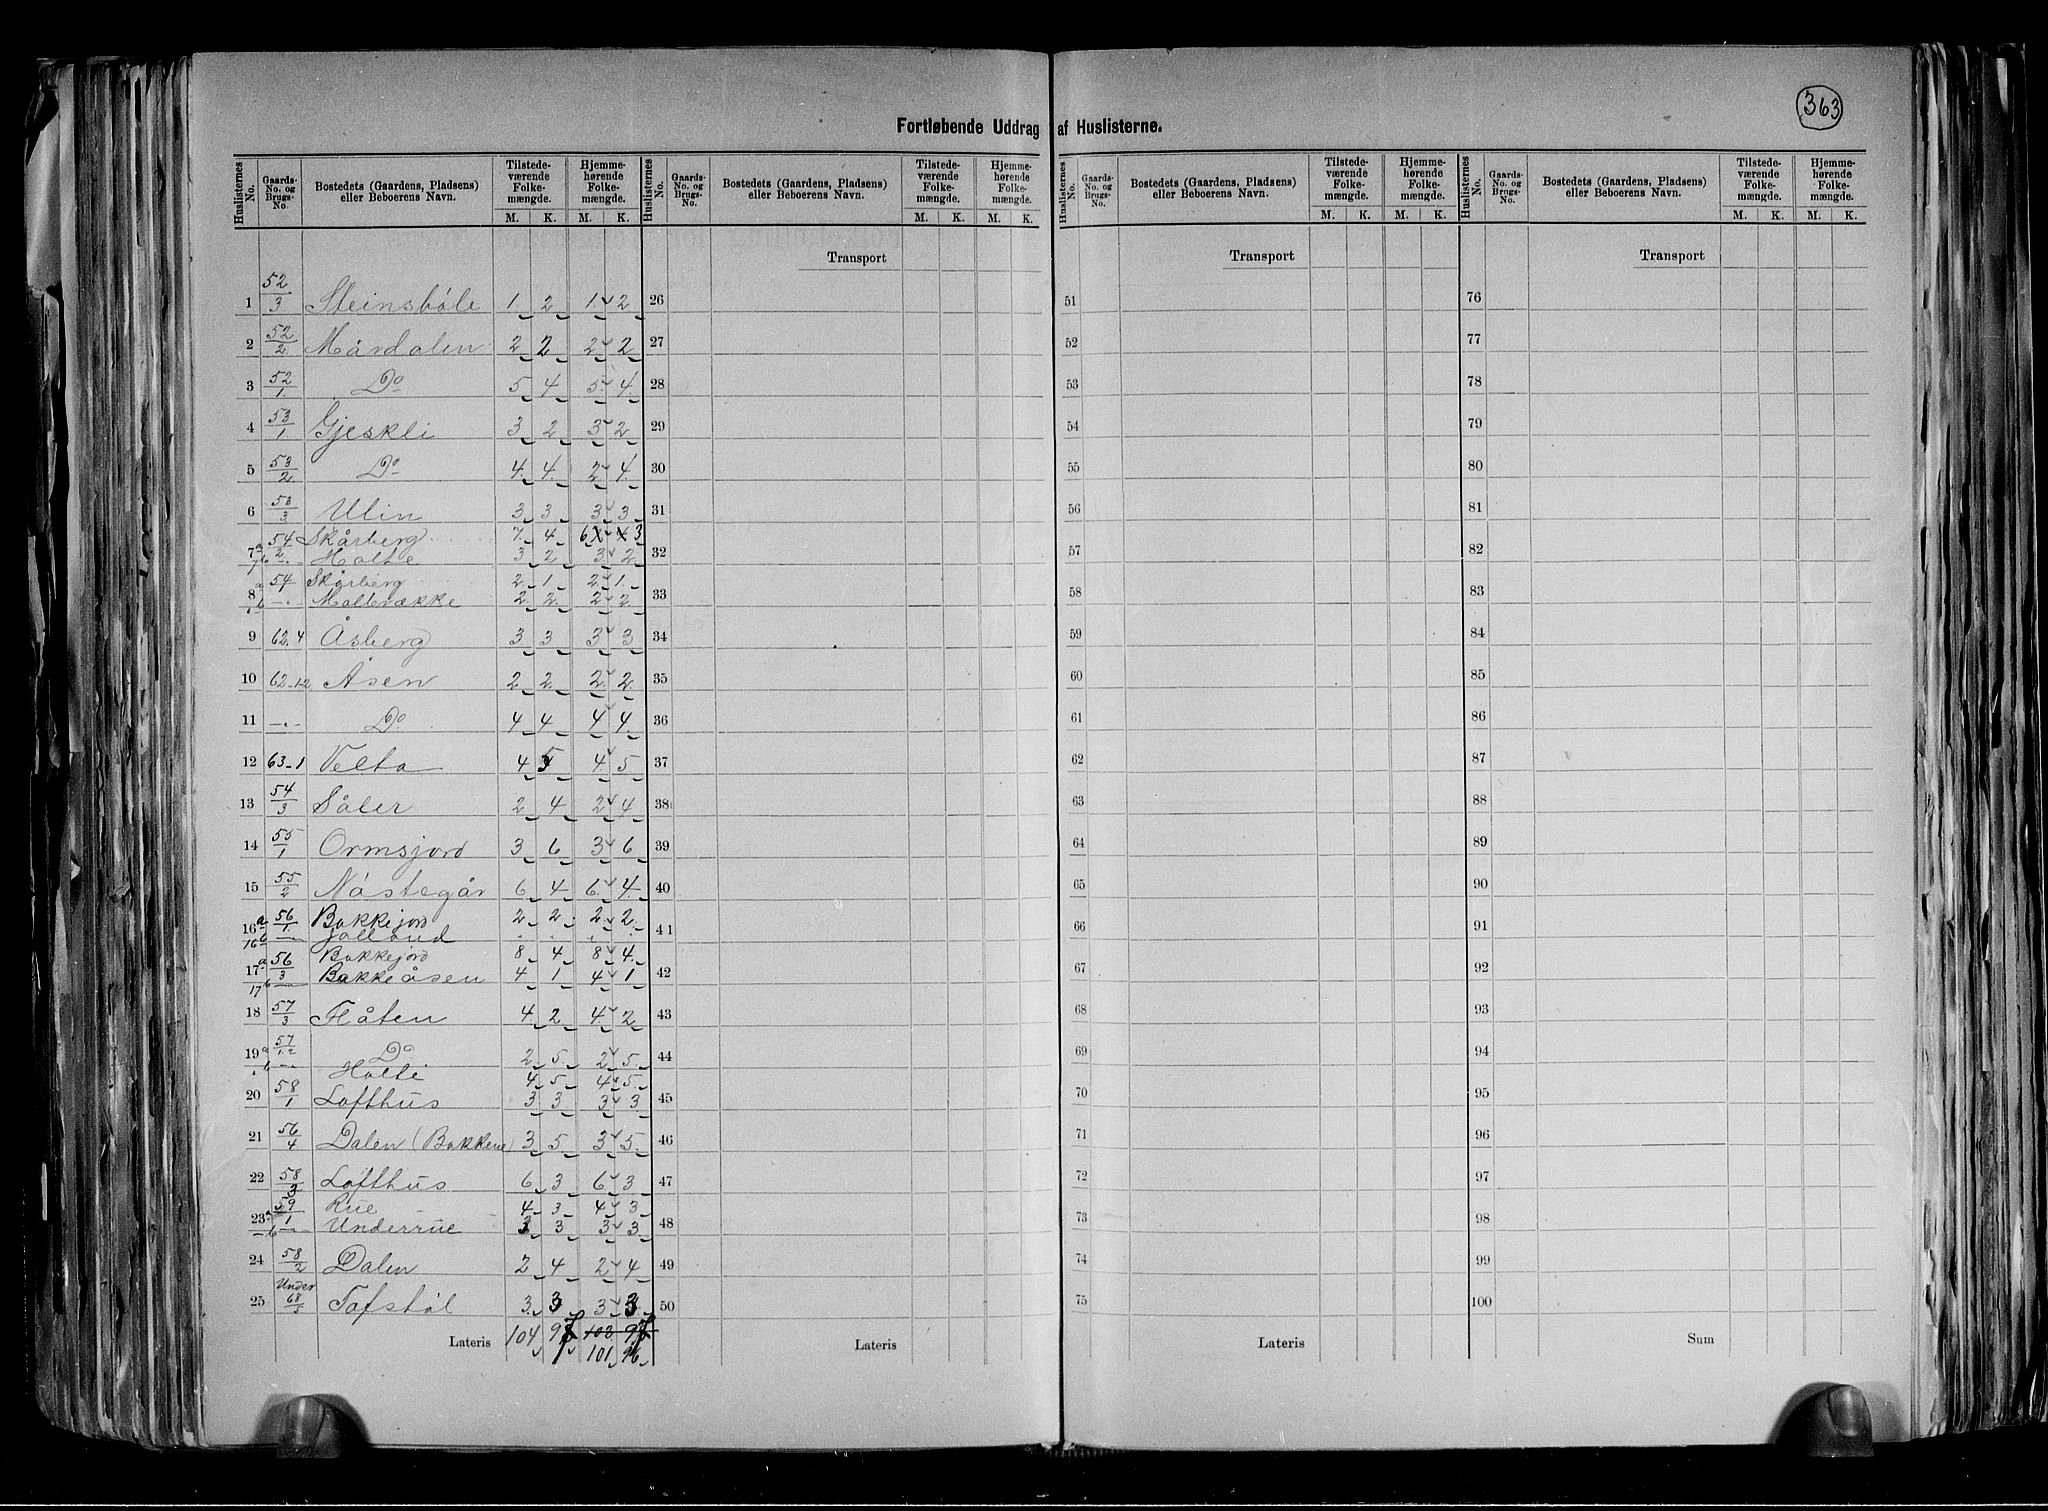 363
Fortløbende Uddrag af Huslisterne.
Huslisternes No. Gaards-No. og Brugs-No. Bostedets (Gaardens, Pladsens) eller Beboerens Navn. Tilstedeværende Folkemængde. M. K. Hjemmehørende Folkemængde. M. K.
Huslisternes No. Gaards-No. og Brugs-No. Bostedets (Gaardens, Pladsens) eller Beboerens Navn. Tilstedeværende Folkemængde. M. K. Hjemmehørende Folkemængde. M. K.
Huslisternes No. Gaards-No. og Brugs-No. Bostedets (Gaardens, Pladsens) eller Beboerens Navn. Tilstedeværende Folkemængde. M. K. Hjemmehørende Folkemængde. M. K.
Huslisternes No. Gaards-No. og Brugs-No. Bostedets (Gaardens, Pladsens) eller Beboerens Navn. Tilstedeværende Folkemængde. M. K. Hjemmehørende Folkemængde. M. K.
Transport Transport Transport
1 52/3 Steinsbøle 1 2 1 2 26 51 76
2 52/2 Mårdalen 2 2 2 2 27 52 77
3 52/1 Do 5 4 5 4 28 53 78
4 53/1 Gjeskli 3 2 3 2 29 54 79
5 53/2 Do 4 4 2 4 30 55 80
6 53/3 Ulin 3 3 3 3 31 56 81
7 a 54/2 Skårberg 7 4 6 3 32 57 82
7 b -"- Holte 3 2 3 2
8 a 54/ Skårberg 2 1 2 1 33 58 83
b -"- Mellbrække 2 2 2 2
9 62.4 Åsberg 3 3 3 3 34 59 84
10 62-12 Åsen 2 2 2 2 35 60 85
11 -"- Do 4 4 4 4 36 61 86
12 63-1 Velta 4 5 4 5 37 62 87
13 54/3 Såler 2 4 2 4 38 63 88
14 55/1 Ormsjord 3 6 3 6 39 64 89
15 55/2 Nåstegår 6 4 6 4 40 65 90
16 a 56/1 Bakkejord 2 2 2 2 41 66 91
16 b -"- Jolland
17 a 56/3 Bakkejord 8 4 8 4 42 67 92
17 b -"- Bakkeåsen 4 1 4 1
18 57/3 Flåten 4 2 4 2 43 68 93
19 a 57/1.2 Do 2 5 2 5 44 69 94
b -"- Holte 4 5 4 5
20 58/1 Lofthus 3 3 3 3 45 70 95
21 56/4 Dalen (Bakkene) 3 5 3 5 46 71 96
22 58/3 Lofthus 6 3 6 3 47 72 97
23 a 59/1 Rue 4 3 4 3 48 73 98
b -"- Underrue 3 3 3 3
24 58/2 Dalen 2 4 2 4 49 74 99
25 Under 68/5 Tofstøl 3 3 3 3 50 75 100
Lateris 104 97 102 97 Lateris Lateris Sum
101 96